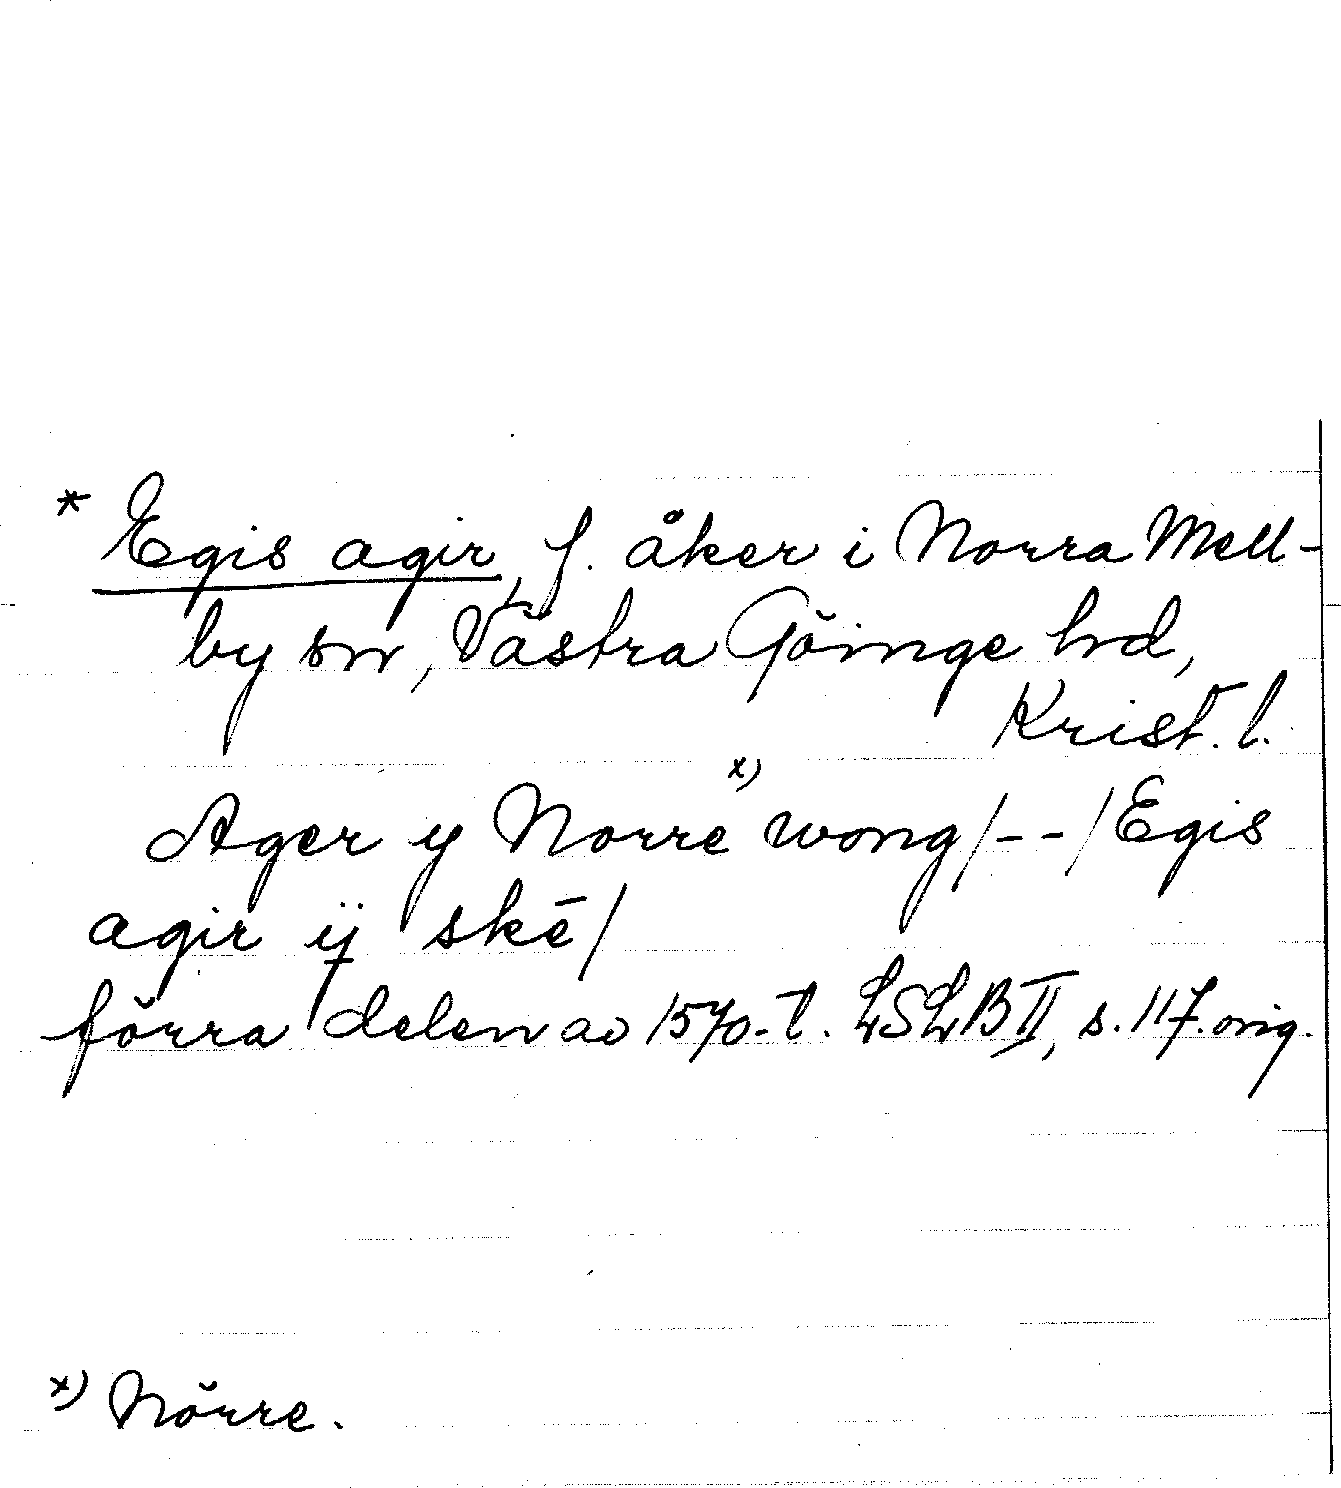 * Egis agir, f. åker i Norra Mell-
by sn, Västra Göinge hd,
Krist. l.
Ager y Norre x) wong/--/Egis
agir ÿ skē/
förra delen av 1570-t. LSLB II, s. 117. orig.
x) Nörre.